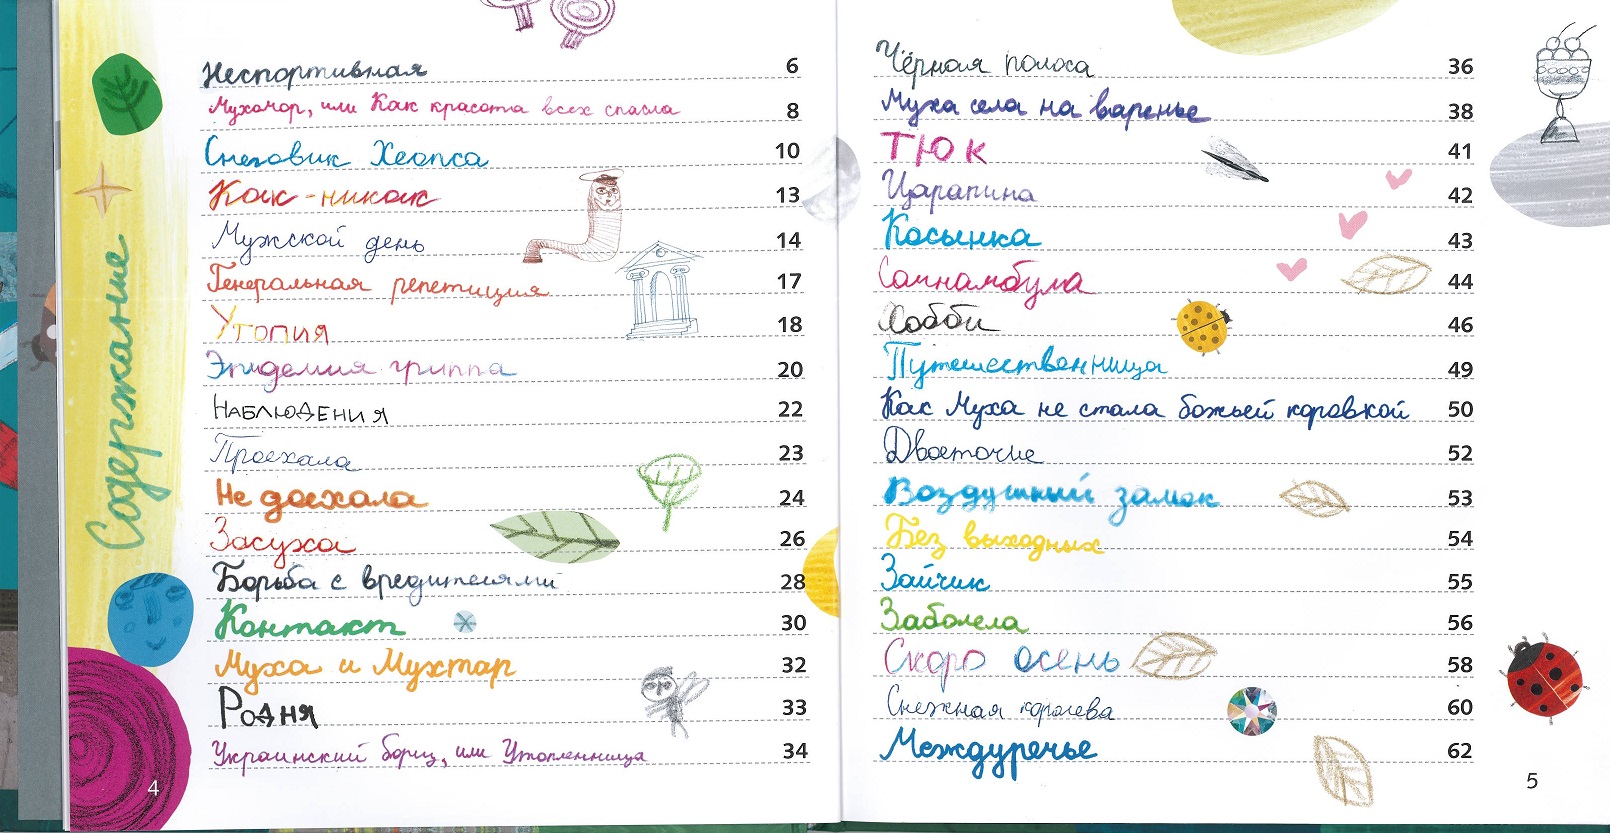 Содержание
Неспортивная 6
Мухомор, или Как красота всех спасла 8
Снеговик Хеопса 10
Как-никак 13
Мужской день 14
Генеральная репетиция 17
Утопия 18
Эпидемия гриппа 20
Наблюдения 22
Проехала 23
Не доехала 24
Засуха 26
Борьба с вредителями 28
Контакт 30
Муха и Мухтар 32
Родня 33
Украинский борщ, или Утопленница 34
4
Чёрная полоса 36
Муха села на варенье 38
ТЮК 41
Царапина 42
Косынка 43
Сомнамбула 44
Хобби 46
Путешественница 49
Как Муха не стала божьей коровкой 50
Двоеточие 52
Воздушный замок 53
Без выходных 54
Зайчик 55
Заболела 56
Скоро осень 58
Снежная королева 60
Междуречье 62
5